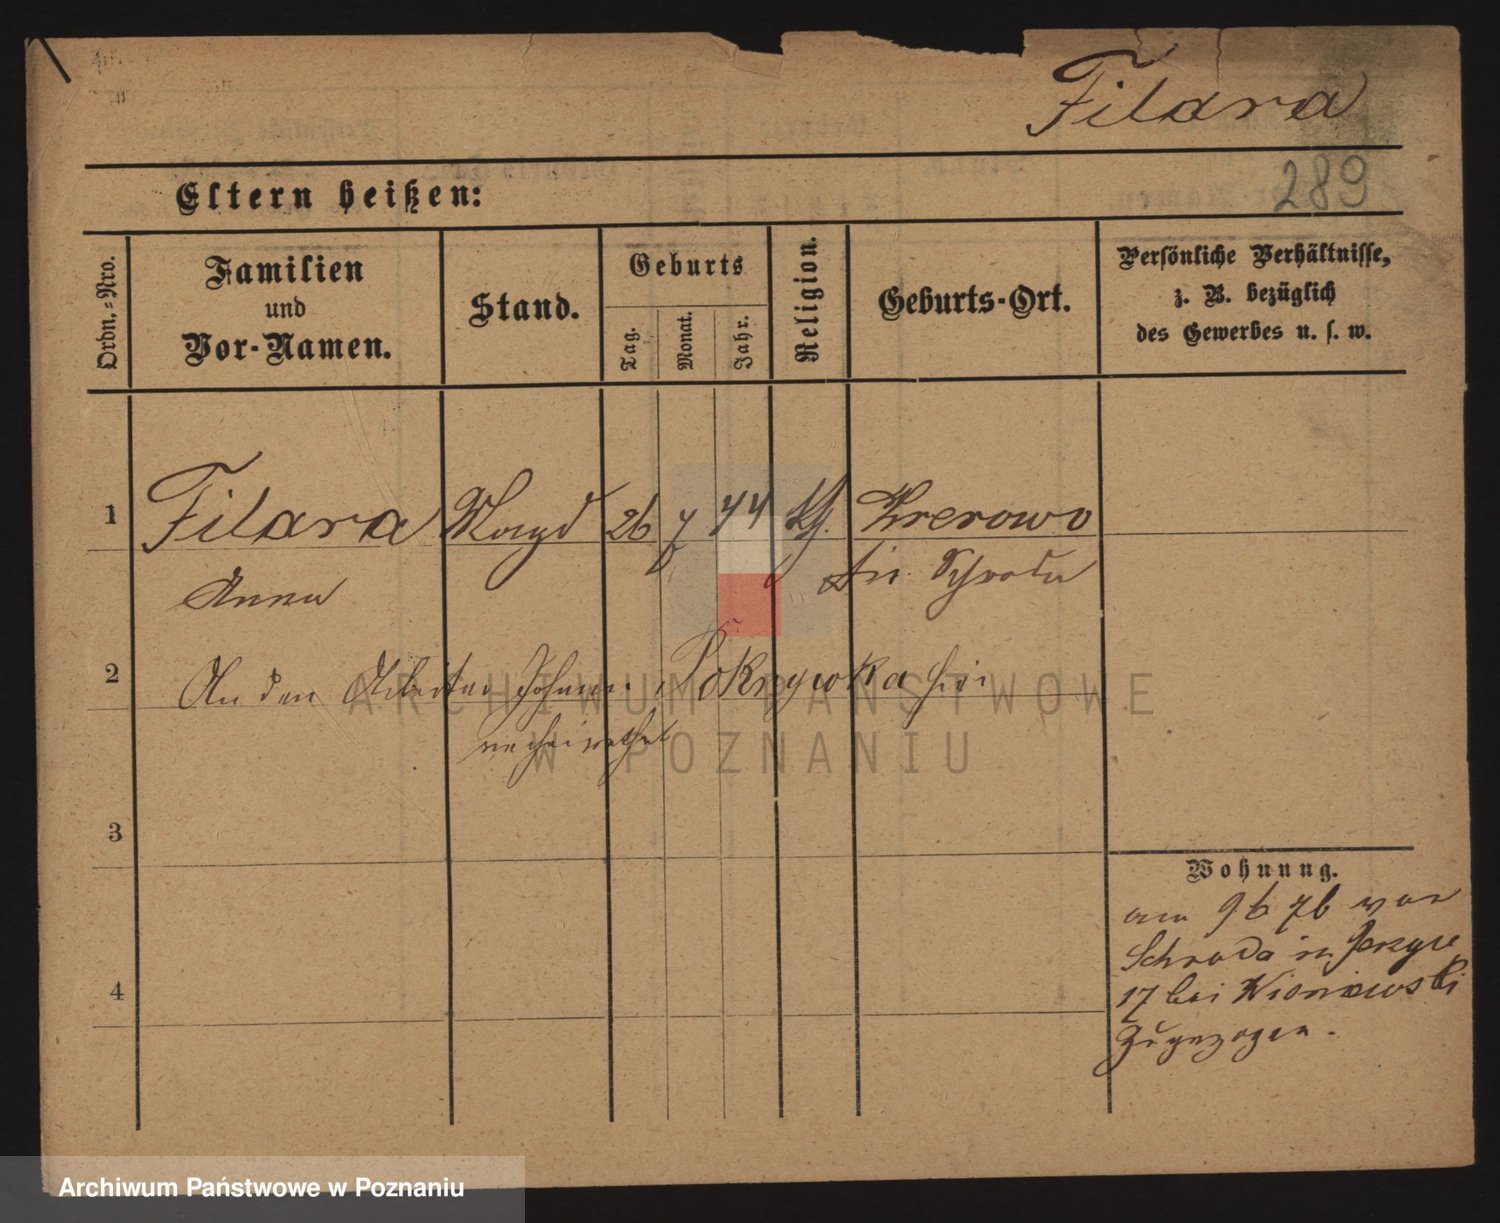 Filara
289
Eltern heißen:
Ordn.-Nro.
Familien
und
Vor-Namen.
Stand.
Geburts
Tag.
Monat.
Jahr.
Religion.
Geburts-Ort.
Persönliche Verhältnisse,
z. B. bezüglich
des Gewerbes u. s. w.
1 Filara Magd 26 7 74 kth. Krerowo
Anna Kr. Schroda
2 An den Arbeiter Johann Pokrzywka hier
verheirathet
3
4
Wohnung.
am 9 6 96 von
Schroda in Jerzyce
17 bei Wisniewski
zugezogen.
ARCHIWUM PAŃSTWOWE
W POZNANIU
Archiwum Państwowe w Poznaniu